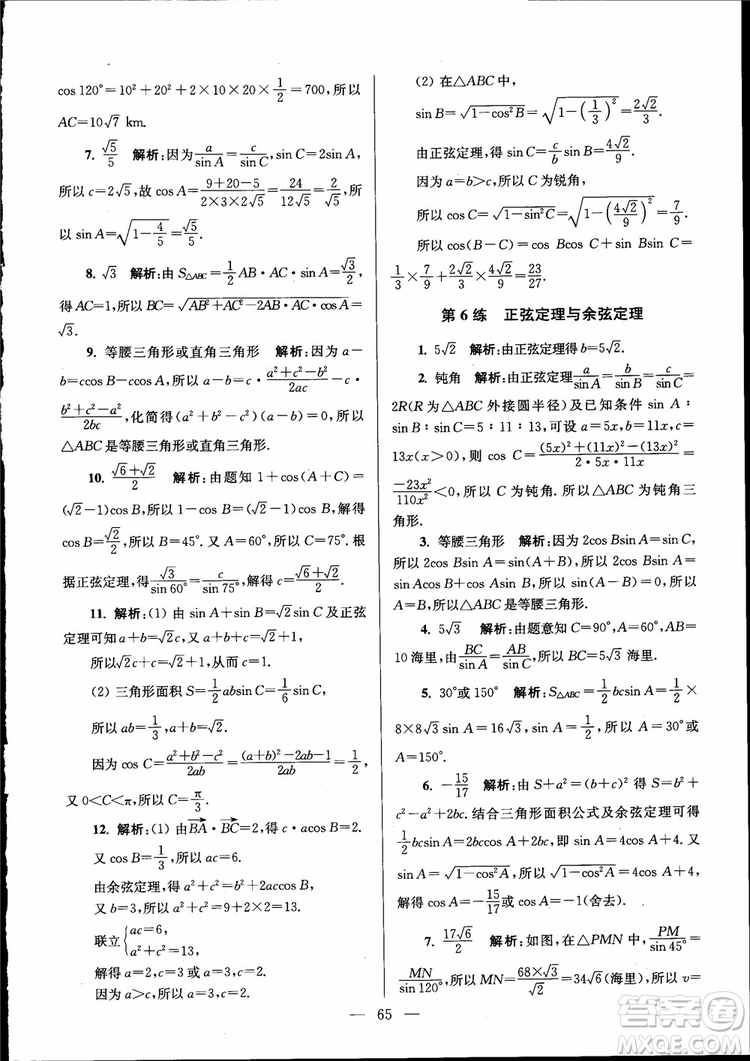 cos 120°=10²+20²+2×10×20×1/2=700,所以
AC=10√7 km.
7. √5/5 解析:因为a/sin A=c/sin C,sin C=2sin A,
所以 c=2√5,故 cos A=(9+20-5)/(2×3×2√5)=24/(12√5)=2/√5,所
以 sin A=√(1-4/5)=√5/5.
8. √3 解析:由 S△ABC=1/2 AB·AC·sin A=√3/2,
得 AC=1,所以 BC=√(AB²+AC²-2AB·AC·cos A)=
√3.
9. 等腰三角形或直角三角形 解析:因为 a-
b=ccos B-ccos A,所以 a-b=c·(a²+c²-b²)/2ac-c·
(b²+c²-a²)/2bc,化简得(a²+b²-c²)(a-b)=0,所以
△ABC 是等腰三角形或直角三角形.
10. (√6+√2)/2 解析:由题知 1+cos B=
(√2-1)cos B,所以 1-cos B=(√2-1)cos B,所以
cos B=√2/2,所以 B=45°. 又 A=60°,所以 C=75°. 根
据正弦定理得√3/sin 60°=c/sin 75°,解得 c=(√6+√2)/2.
11. 解析:(1) 由 sin A+sin B=√2sin C 及正弦
定理可知 a+b=√2c,又因为 a+b+c=√2+1,
所以√2c+c=√2+1,从而 c=1.
(2) 三角形面积 S=1/2 absin C=1/6 sin C,
所以 ab=1/3,a+b=√2.
因为 cos C=(a²+b²-c²)/2ab=((a+b)²-2ab-1)/2ab=1/2,
又 0<C<π,所以 C=π/3.
12. 解析:(1) 由BA·BC=2,得 c·acos B=2.
又 cos B=1/3,所以 ac=6.
由余弦定理,得 a²+c²=b²+2accos B.
又 b=3,所以 a²+c²=9+2×2=13.
联立{ac=6, a²+c²=13,
解得 a=2,c=3 或 a=3,c=2.
因为 a>c,所以 a=3,c=2.
(2) 在△ABC 中,
sin B=√(1-cos²B)=√(1-(1/3)²)=2√2/3,
由正弦定理,得 sin C=c/b sin B=4√2/9.
因为 a=b>c,所以 C 为锐角,
所以 cos C=√(1-sin²C)=√(1-(4√2/9)²)=7/9.
所以 cos(B-C)=cos Bcos C+sin Bsin C=
1/3×7/9+2√2/3×4√2/9=23/27.
第 6 练 正弦定理与余弦定理
1. 5√2 解析:由正弦定理得 b=5√2.
2. 钝角 解析:由正弦定理a/sin A=b/sin B=c/sin C=
2R(R 为△ABC 外接圆半径)及已知条件 sin A:
sin B:sin C=5:11:13,可设 a=5x,b=11x,c=
13x(x>0),则 cos C=((5x)²+(11x)²-(13x)²)/(2·5x·11x)=
-23x²/110x²<0,所以 C 为钝角,所以△ABC 为钝角三
角形.
3. 等腰三角形 解析:因为 2cos Bsin A=sin C,
所以 2cos Bsin A=sin(A+B),所以 2cos Bsin A=
sin Acos B+cos Asin B,所以 sin(A-B)=0,所以
A=B. 所以△ABC 是等腰三角形.
4. 5√3 解析:由题意知 C=90°,A=60°,AB=
10 海里,由BC/sin A=AB/sin C,所以 BC=5√3 海里.
5. 30°或 150° 解析:S△ABC=1/2 bcsin A=1/2×
8×8√3 sin A=16√3,所以 sin A=1/2,所以 A=30°或
A=150°.
6. -15/17 解析:由 S+a²=(b+c)² 得 S=b²+
c²-a²+2bc. 结合三角形面积公式及余弦定理得
1/2 bcsin A=2bccos A+2bc,即 sin A=4cos A+4. 又
sin A=√(1-cos²A),所以√(1-cos²A)=4cos A+4,
解得 cos A=-15/17或 cos A=-1(舍去).
7. 17√6/2 解析:如图,在△PMN 中,PM/sin 45°=
MN/sin 120°,所以 MN=68×√3/√2=34√6(海里),所以 v=
— 65 —
答案圈
MXQE.COM